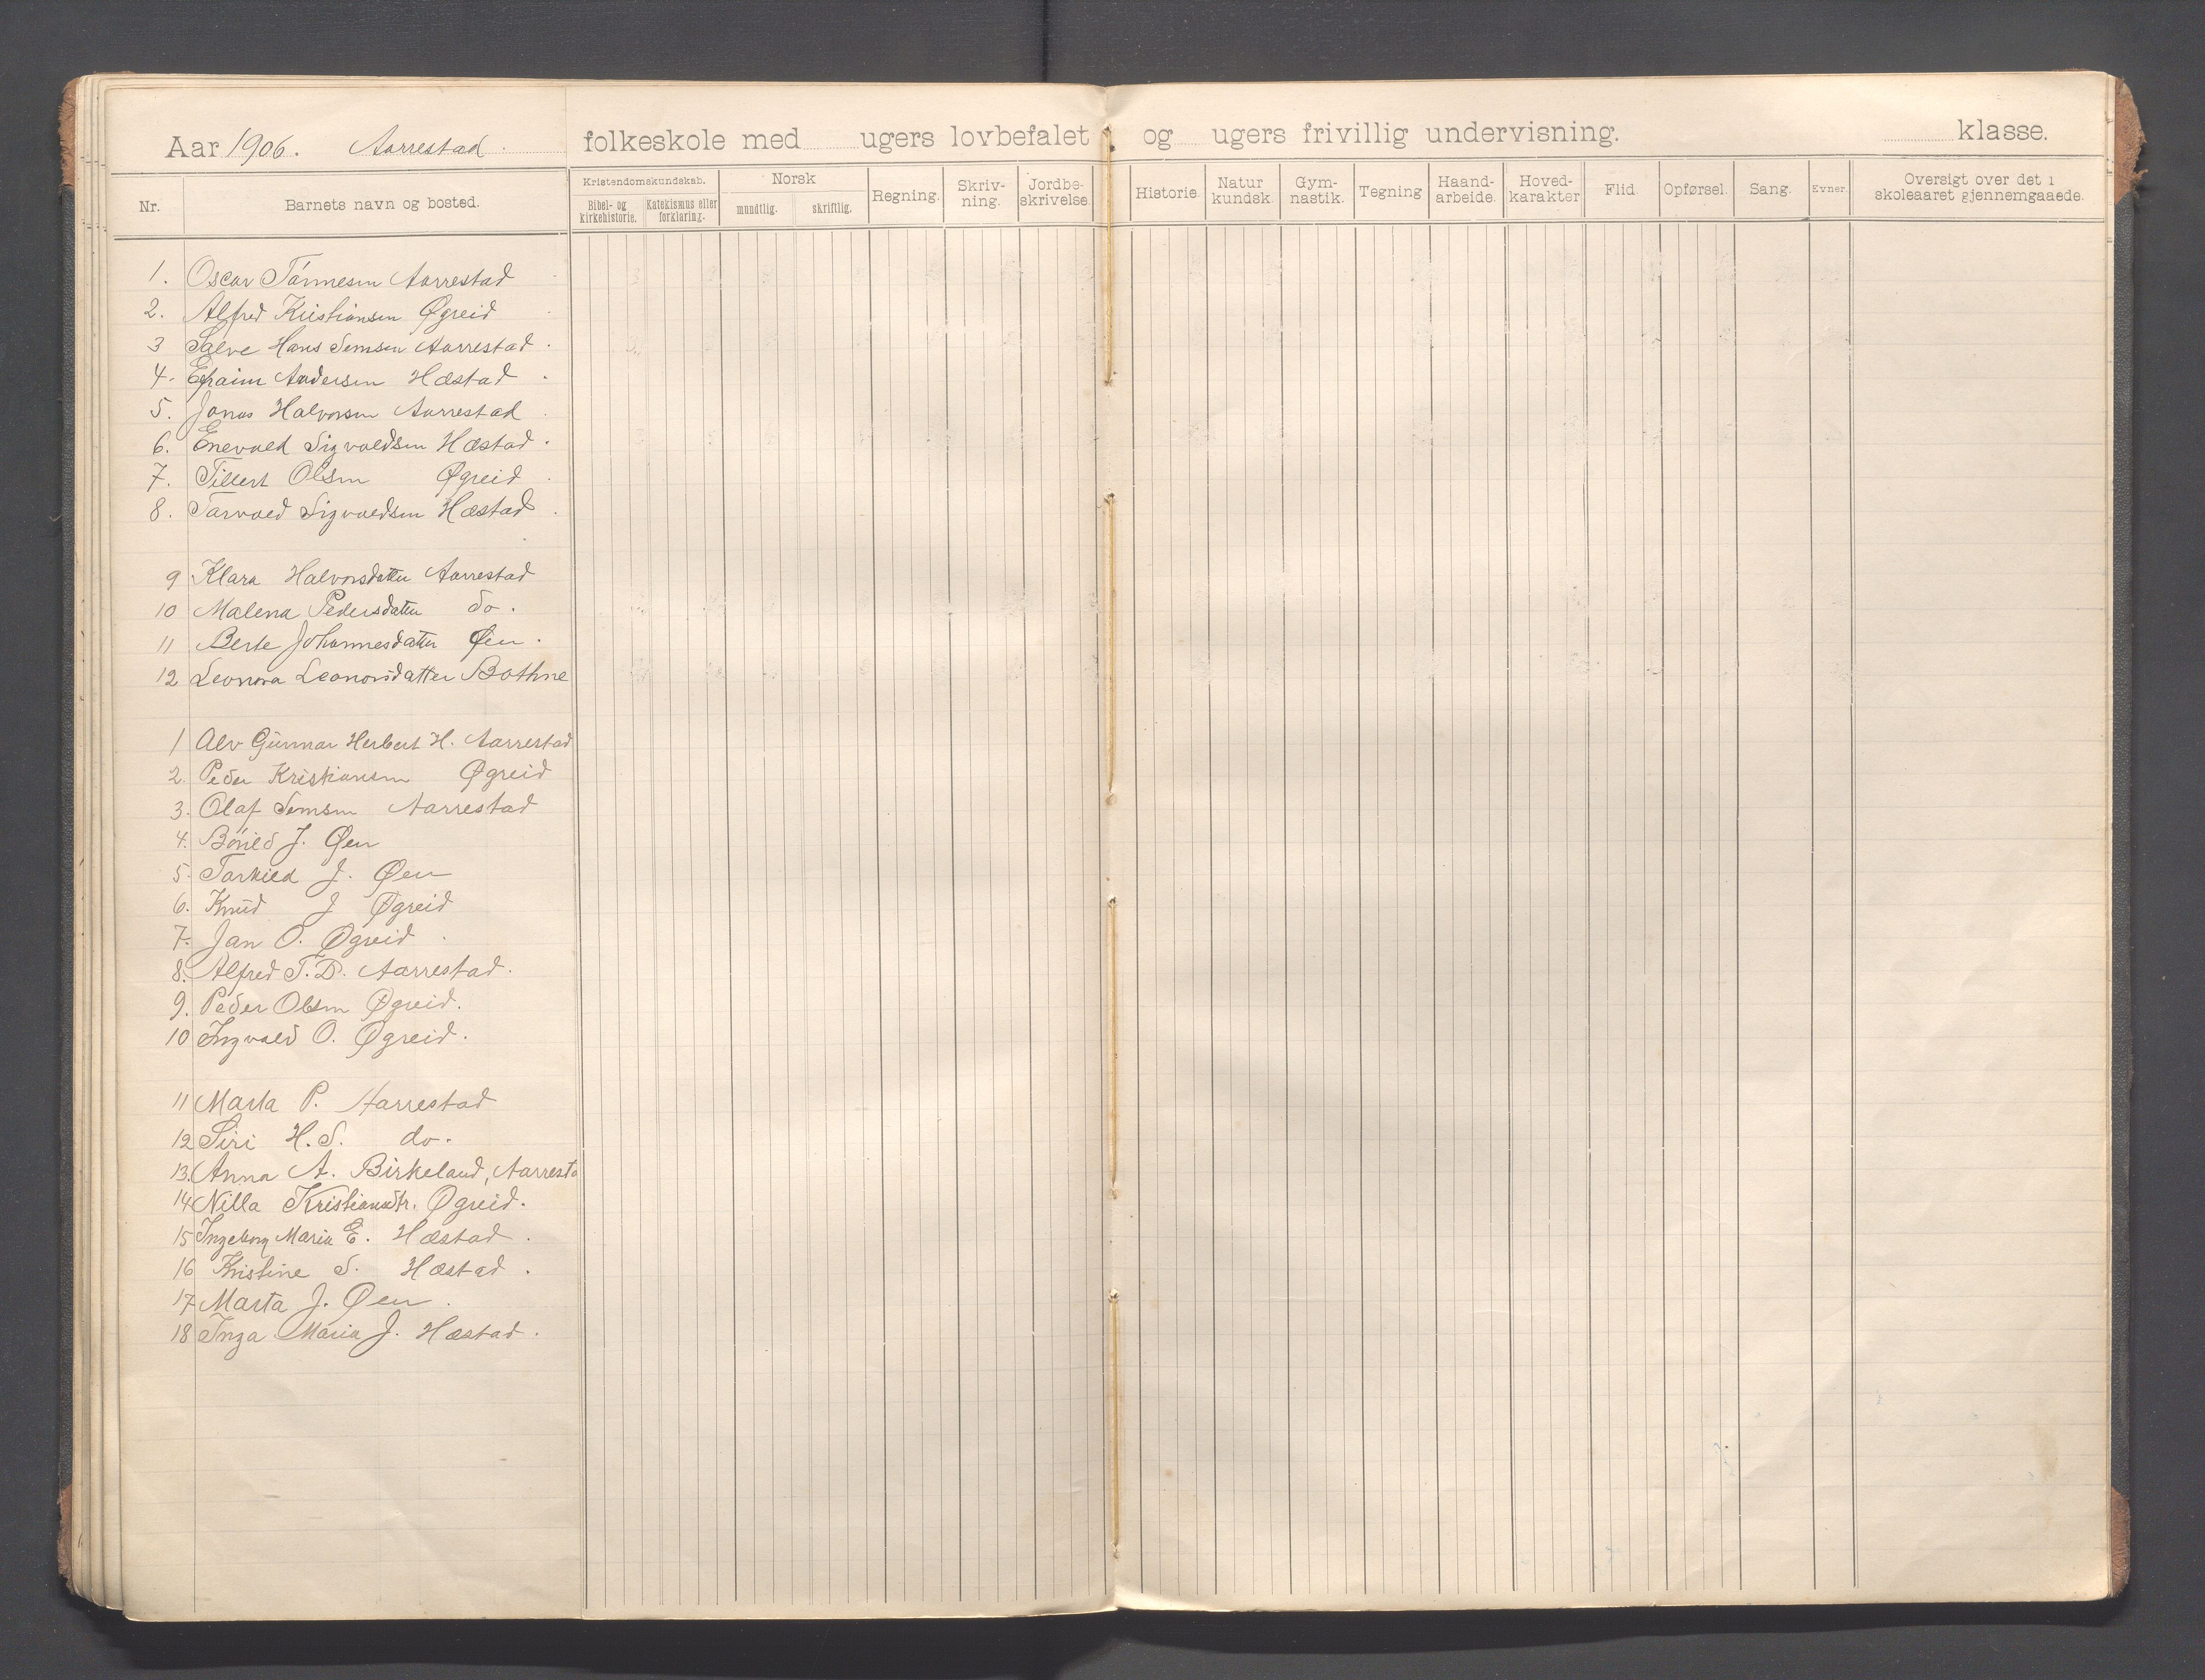 Aar 1906. Aarrestad folkeskole med ugers lovbefalet og ugers frivillig undervisning. klasse.
Nr. Barnets navn og bosted. Kristendomskundskab. Bibel- og kirkehistorie. Katekismus eller forklaring. Norsk mundtlig. skriftlig. Regning. Skriv-ning. Jordbe-skrivelse. Historie. Natur kundsk. Gym-nastik. Tegning Haand-arbeide. Hoved-karakter Flid Opførsel. Sang. Evner. Oversigt over det i skoleaaret gjennemgaaede.
1. Oscar Tønnesen Aarrestad
2. Alfred Kristiansen Øgreid
3 Salve Hans Semsen Aarrestad
4. Efraim Andersen Hæstad
5. Jonas Halvorsen Aarrestad
6. Enevald Sigvaldsen Hæstad
7. Tillert Olsen Øgreid
8. Tarvald Sigvaldsen Hæstad
9 Klara Halvorsdatter Aarrestad
10 Malena Pedersdatter do.
11 Berte Johannesdatter Øen.
12 Leonora Leonorsdatter Bothne
1 Alv Gunnar Herbert H. Aarrestad
2. Peder Kristiansen Øgreid
3. Olaf Semsen Aarrestad
4. J. Øen
5. Tarkild J. Øen
6. Knud J Øgreid
7. Jan O. Øgreid
8. Alfred T. D. Aarrestad.
9. Peder Olsen Øgreid.
10 Ingvald O. Øgreid.
11 Marta P. Aarrestad
12 Siri H. S. do.
13. Anna A. Birkeland, Aarresta
14 Nilla Kristiansdtr. Øgreid.
15 Ingeborg Maria E. Hæstad.
16 Kristine S. Hæstad.
17 Marta J. Øen.
18 Inga Maria J. Hæstad.